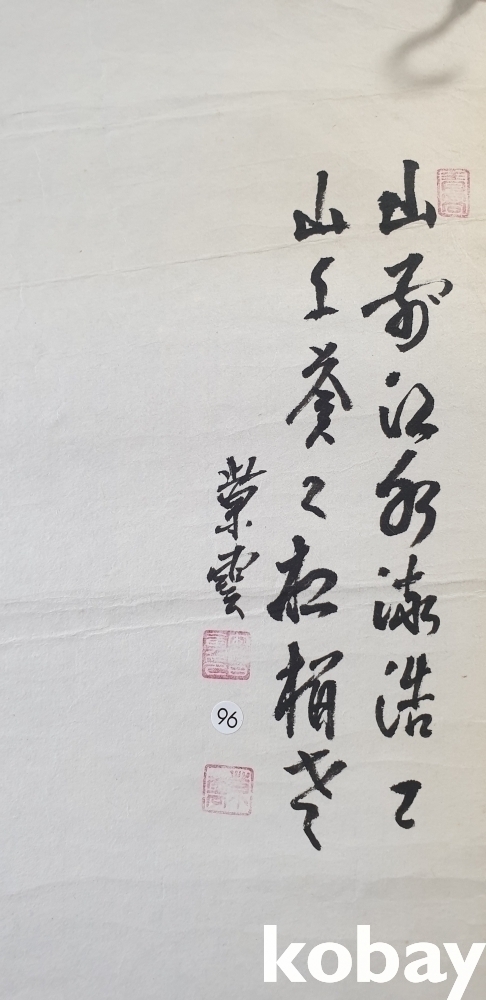 山前江水流浩々
山上蒼々松栢老
雲
96
kobay